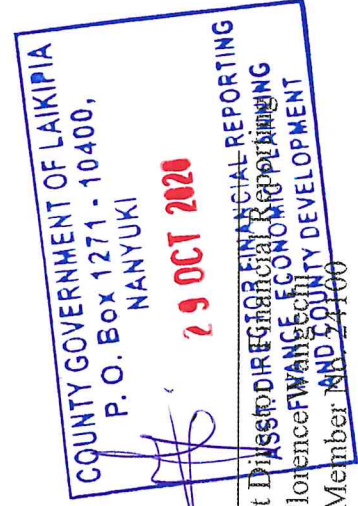 COUNTY GOVERNMENT OF LAIKIPIA
P. O. Box 1271 - 10400,
NANYUKI
29 OCT 2020
ASST. DIRECTOR FINANCIAL REPORTING
FINANCE ECONOMIC PLANNING
AND COUNTY DEVELOPMENT
t Director - Financial Reporting
lorence Wangechi
Member No. 24100